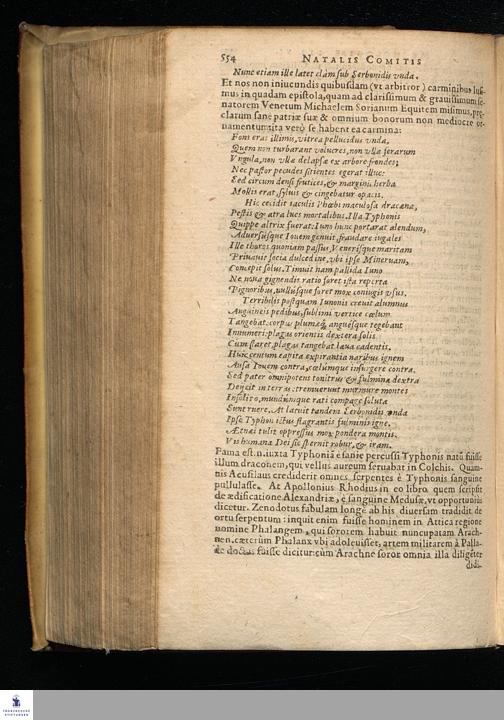 554 NATALIS COMITIS
Nunc etiam ille latet clàm sub Serbonidis vnda.
Et nos non iniucundis quibusdam (vt arbitror) carminibus lusi-
mus in quadam epistola, quam ad clarissimum & grauissimum se-
natorem Venetum Michaelem Sorianum Equitem misimus, pre-
clarum sanè patriæ suæ & omnium bonorum non mediocre or-
namentum: ita verò se habent ea carmina:
Fons erat illimis, vitrea pellucidus vnda,
Quem non turbarant volucres, non vlla ferarum
Vngula, non vllæ delapsæ ex arbore frondes;
Nec pastor pecudes sitientes egerat illuc:
Sed circum densi frutices, & margini herba
Mollis erat, syluis & cingebatur opacis.
Hic cecidit iaculis Phœbi maculosa dracæna,
Pestis & atra lues mortalibus. Illa Typhonis
Quippe altrix fuerat: Iuno hunc portarat alendum,
Aduersúsque Iouem genuit, fraudare iugales
Ille thoros quoniam passus, Venerísque maritam
Priuauit socia dulcedine, vbi ipse Mineruam,
Concepit solus. Timuit nam pallida Iuno
Ne noua gignendis ratio foret ista reperta
Pignoribus, nullúsque foret mox coniugii vsus.
Terribilis postquam Iunonis creuit alumnus
Anguineis pedibus, sublimi vertice cœlum
Tangebat: corpus plumæq, anguésque tegebant
Innumeri: plagas orientis dextera solis
Cum staret, plagas tangebat læua cadentis.
Huic centum capita expirantia naribus ignem
Ausa Iouem contra, cœlumque insurgere contra.
Sed pater omnipotens tonitru & fulmine dextra
Deiicit in terras: tremuerunt murmure montes
Insolito, mundúmque rati compage soluta
Sunt ruere. At latuit tandem Serbonidis vnda
Ipse Typhon ictus flagrantis fulminis igne.
Ætnæi tulit oppressus mox pondera montis.
Vis humana Dei sic spernit robur, & iram.
Fama est. n. iuxta Typhoniâ è sanie percussi Typhonis natũ fuisse
illum draconem, qui vellus aureum seruabat in Colchis. Quam-
uis Acusilaus crediderit omnes serpentes è Typhonis sanguine
pullulasse. At Apollonius Rhodius in eo libro quem scripsit
de ædificatione Alexandriæ, è sanguine Medusæ, vt opportunius
dicetur. Zenodotus fabulam longè ab his diuersam tradidit de
ortu serpentum: inquit enim fuisse hominem in Attica regione
nomine Phalangem, qui sororem habuit nuncupatam Arach-
nen. cæterùm Phalanx vbi adoleuisset, artem militarem à Palla-
de doctus fuisse dicitur: cùm Arachne soror omnia illa diligẽter
didi-